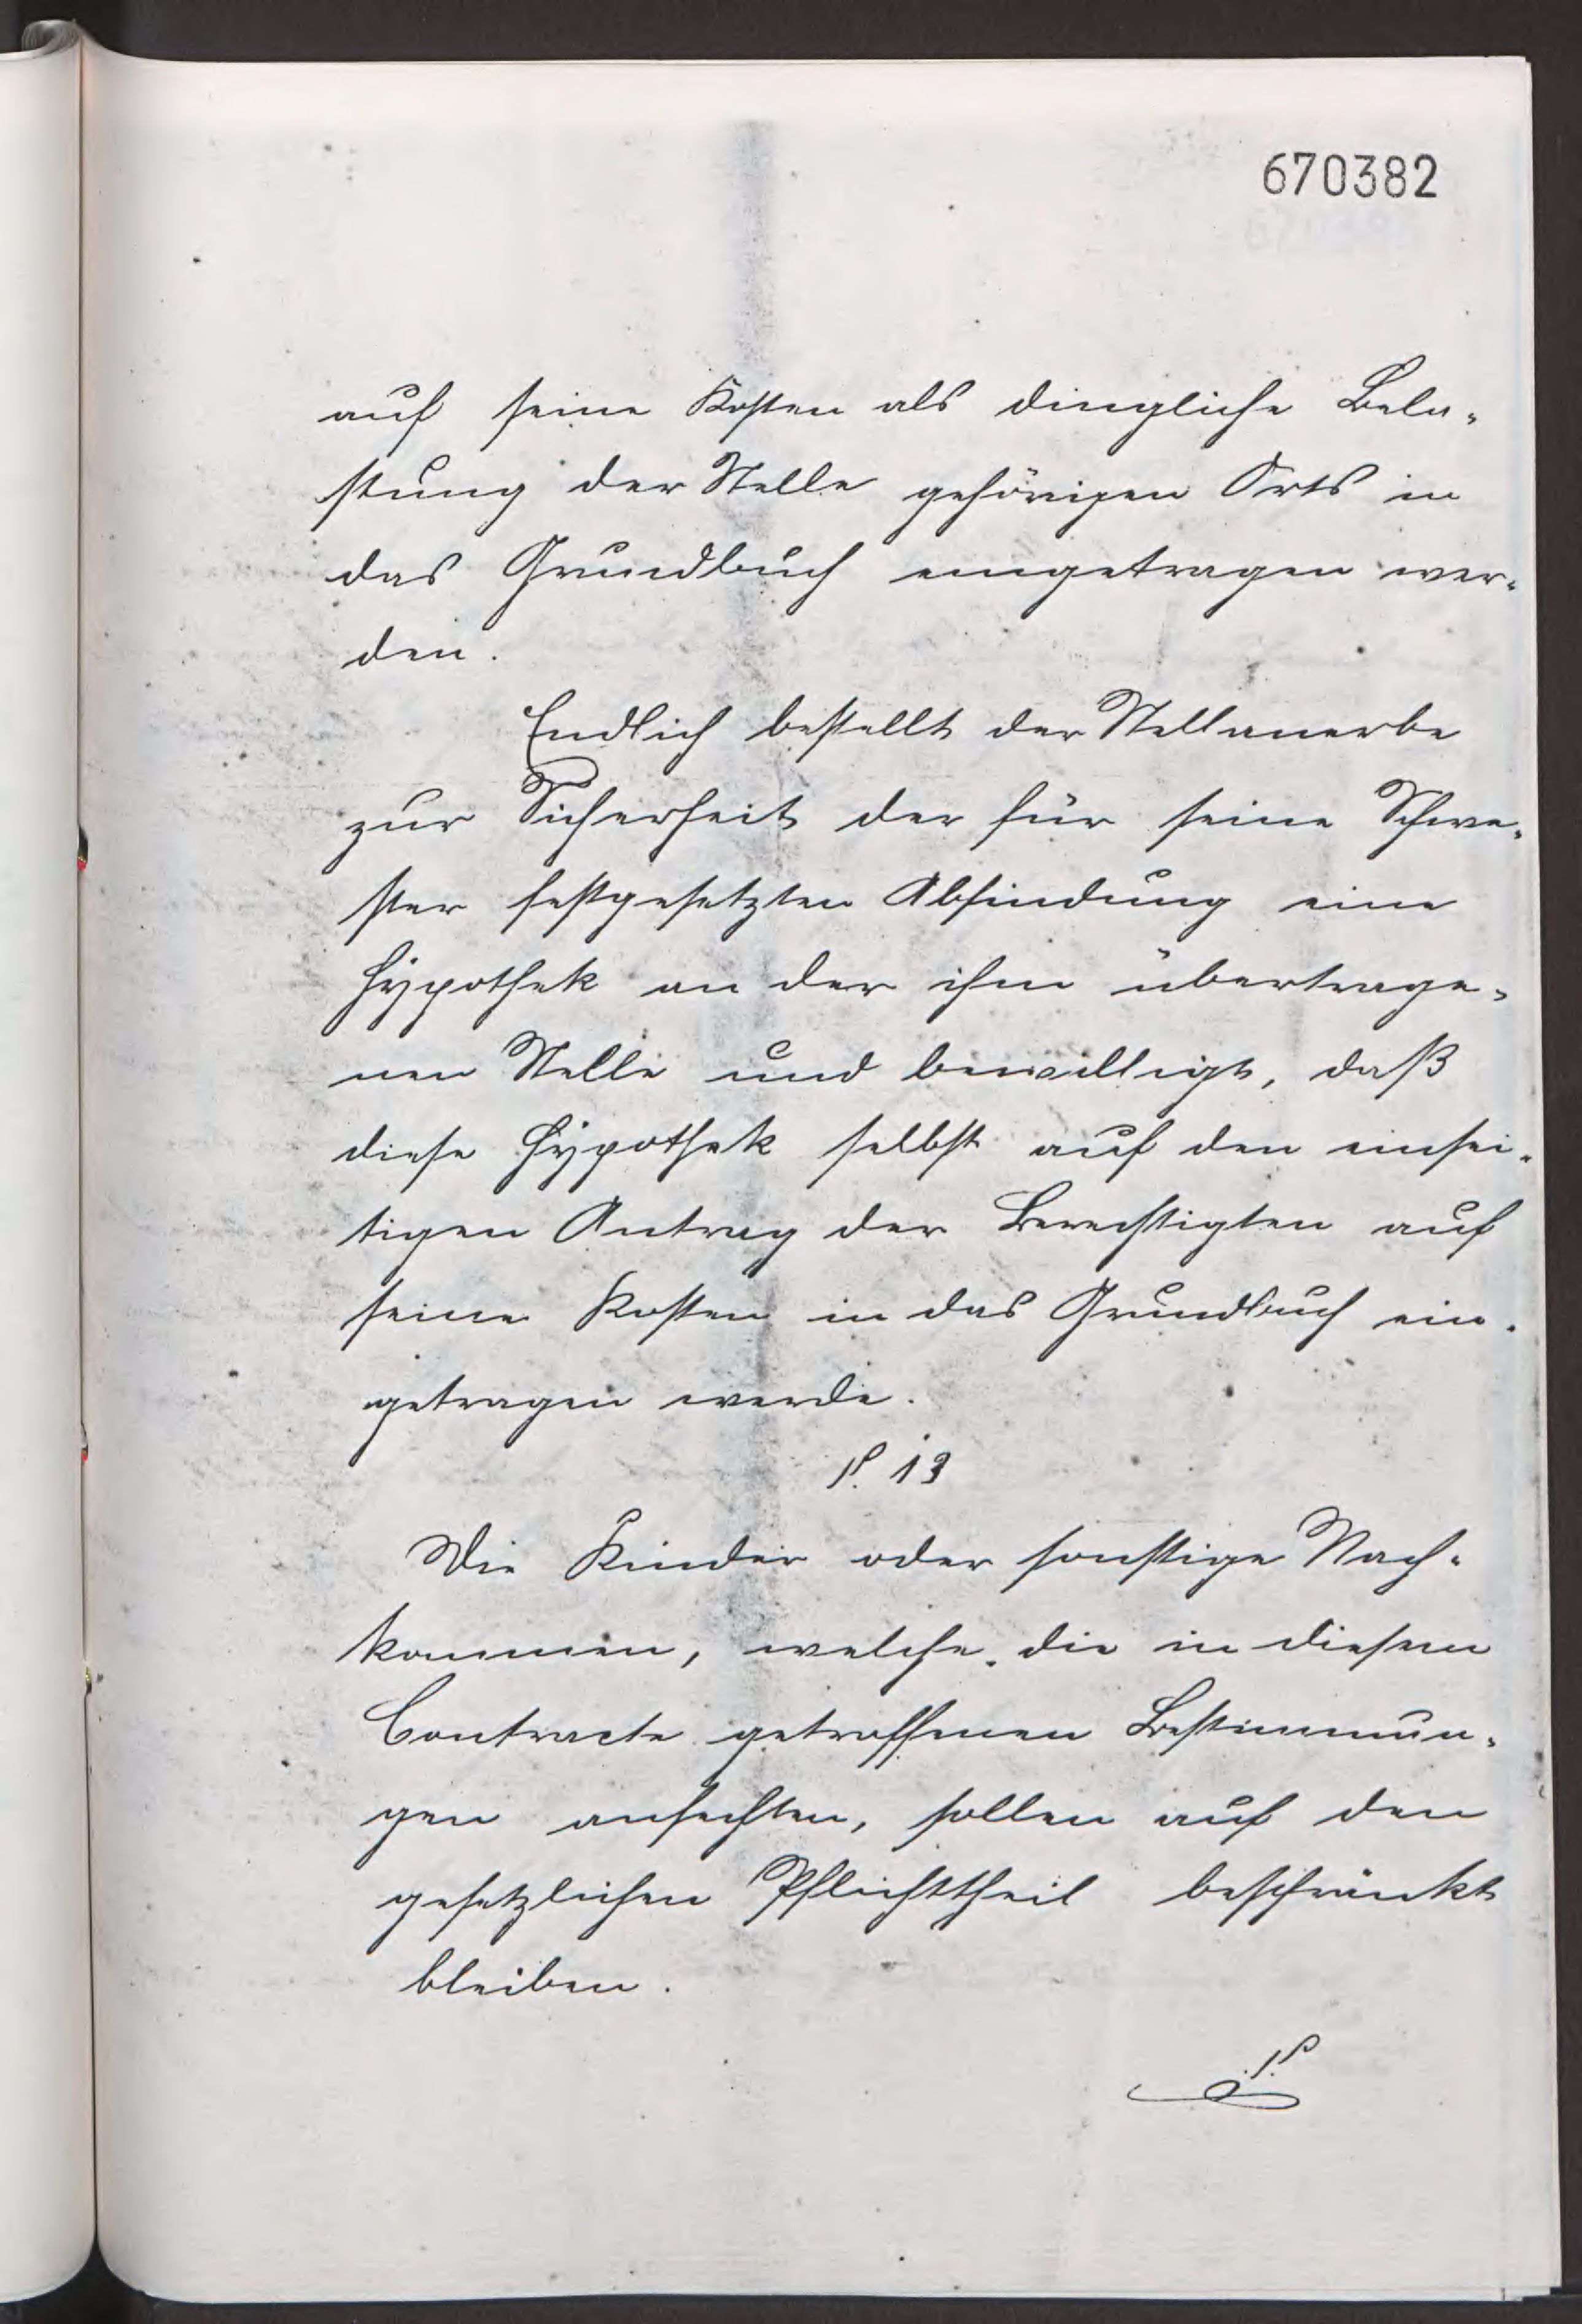 670382
auf seine Kosten als dingliche Bela-
stung der Stelle gehörigen Orts in
das Grundbuch eingetragen wer-
den.
Endlich bestellt der Stellanerbe
zur Sicherheit der für seine Schwe-
ster festgesetzten Abfindung eine
Hypothek an der ihm übertrage-
nen Stelle und bewilligt, daß
diese Hypothek selbst auf den einsei-
tigen Antrag der Berechtigten auf
seine Kosten in das Grundbuch ein-
getragen werde.
§. 13
Die Kinder oder sonstige Nach-
kommen, welche die in diesem
Contracte getroffenen Bestimmun-
gen anfechten, sollen auf den
gesetzlichen Pflichttheil beschränkt
bleiben.
§.